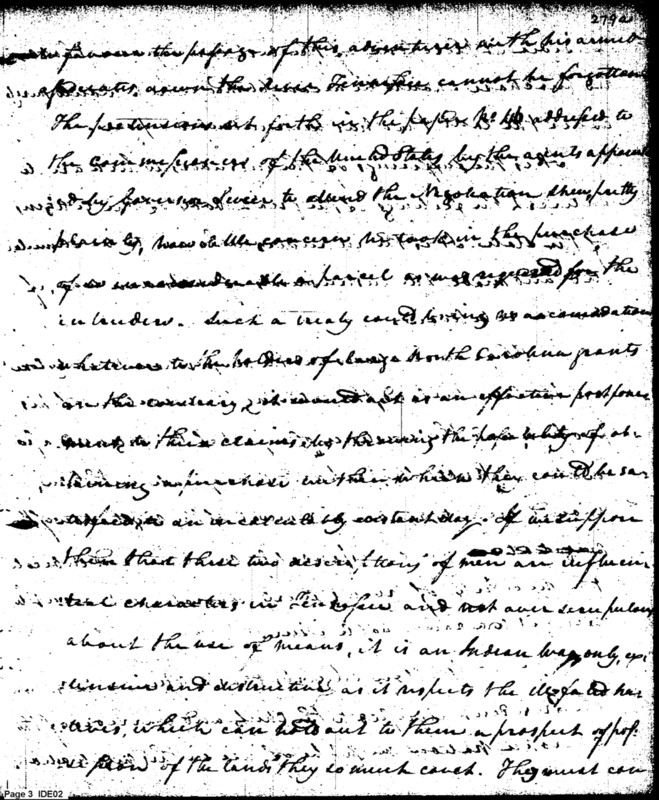 279a
favour the passage of this adventurer with his armed
associates down the River Tennessee cannot be forgotten
The pretensions set forth in the paper No. addressed to
the commissioners of the United States by the agents appoint
ed by Governor Sevier to attend the Negotiation shew, pretty
plainly, how little concern he took in the purchase
of so inconsiderable a parcel as was required for the
intruders. Such a treaty could bring no accommodation
whatever to the holders of large North Carolina grants
on the contrary, it would act as an effective postpone
ment to their claims, by throwing the possibility of ob
taining a purchase within which they could be sa
tisfied to an incalculably distant day. If we suppose
then that these two descriptions of men are influen
tial characters in Tenessee and not over scrupulous
about the use of means, it is an Indian War only, ex
tensive and distructive as it respects the ill fated na
tives, which can hold out to them a prospect of pos
session of the lands they so much covet. They must con
Page 3 IDE02